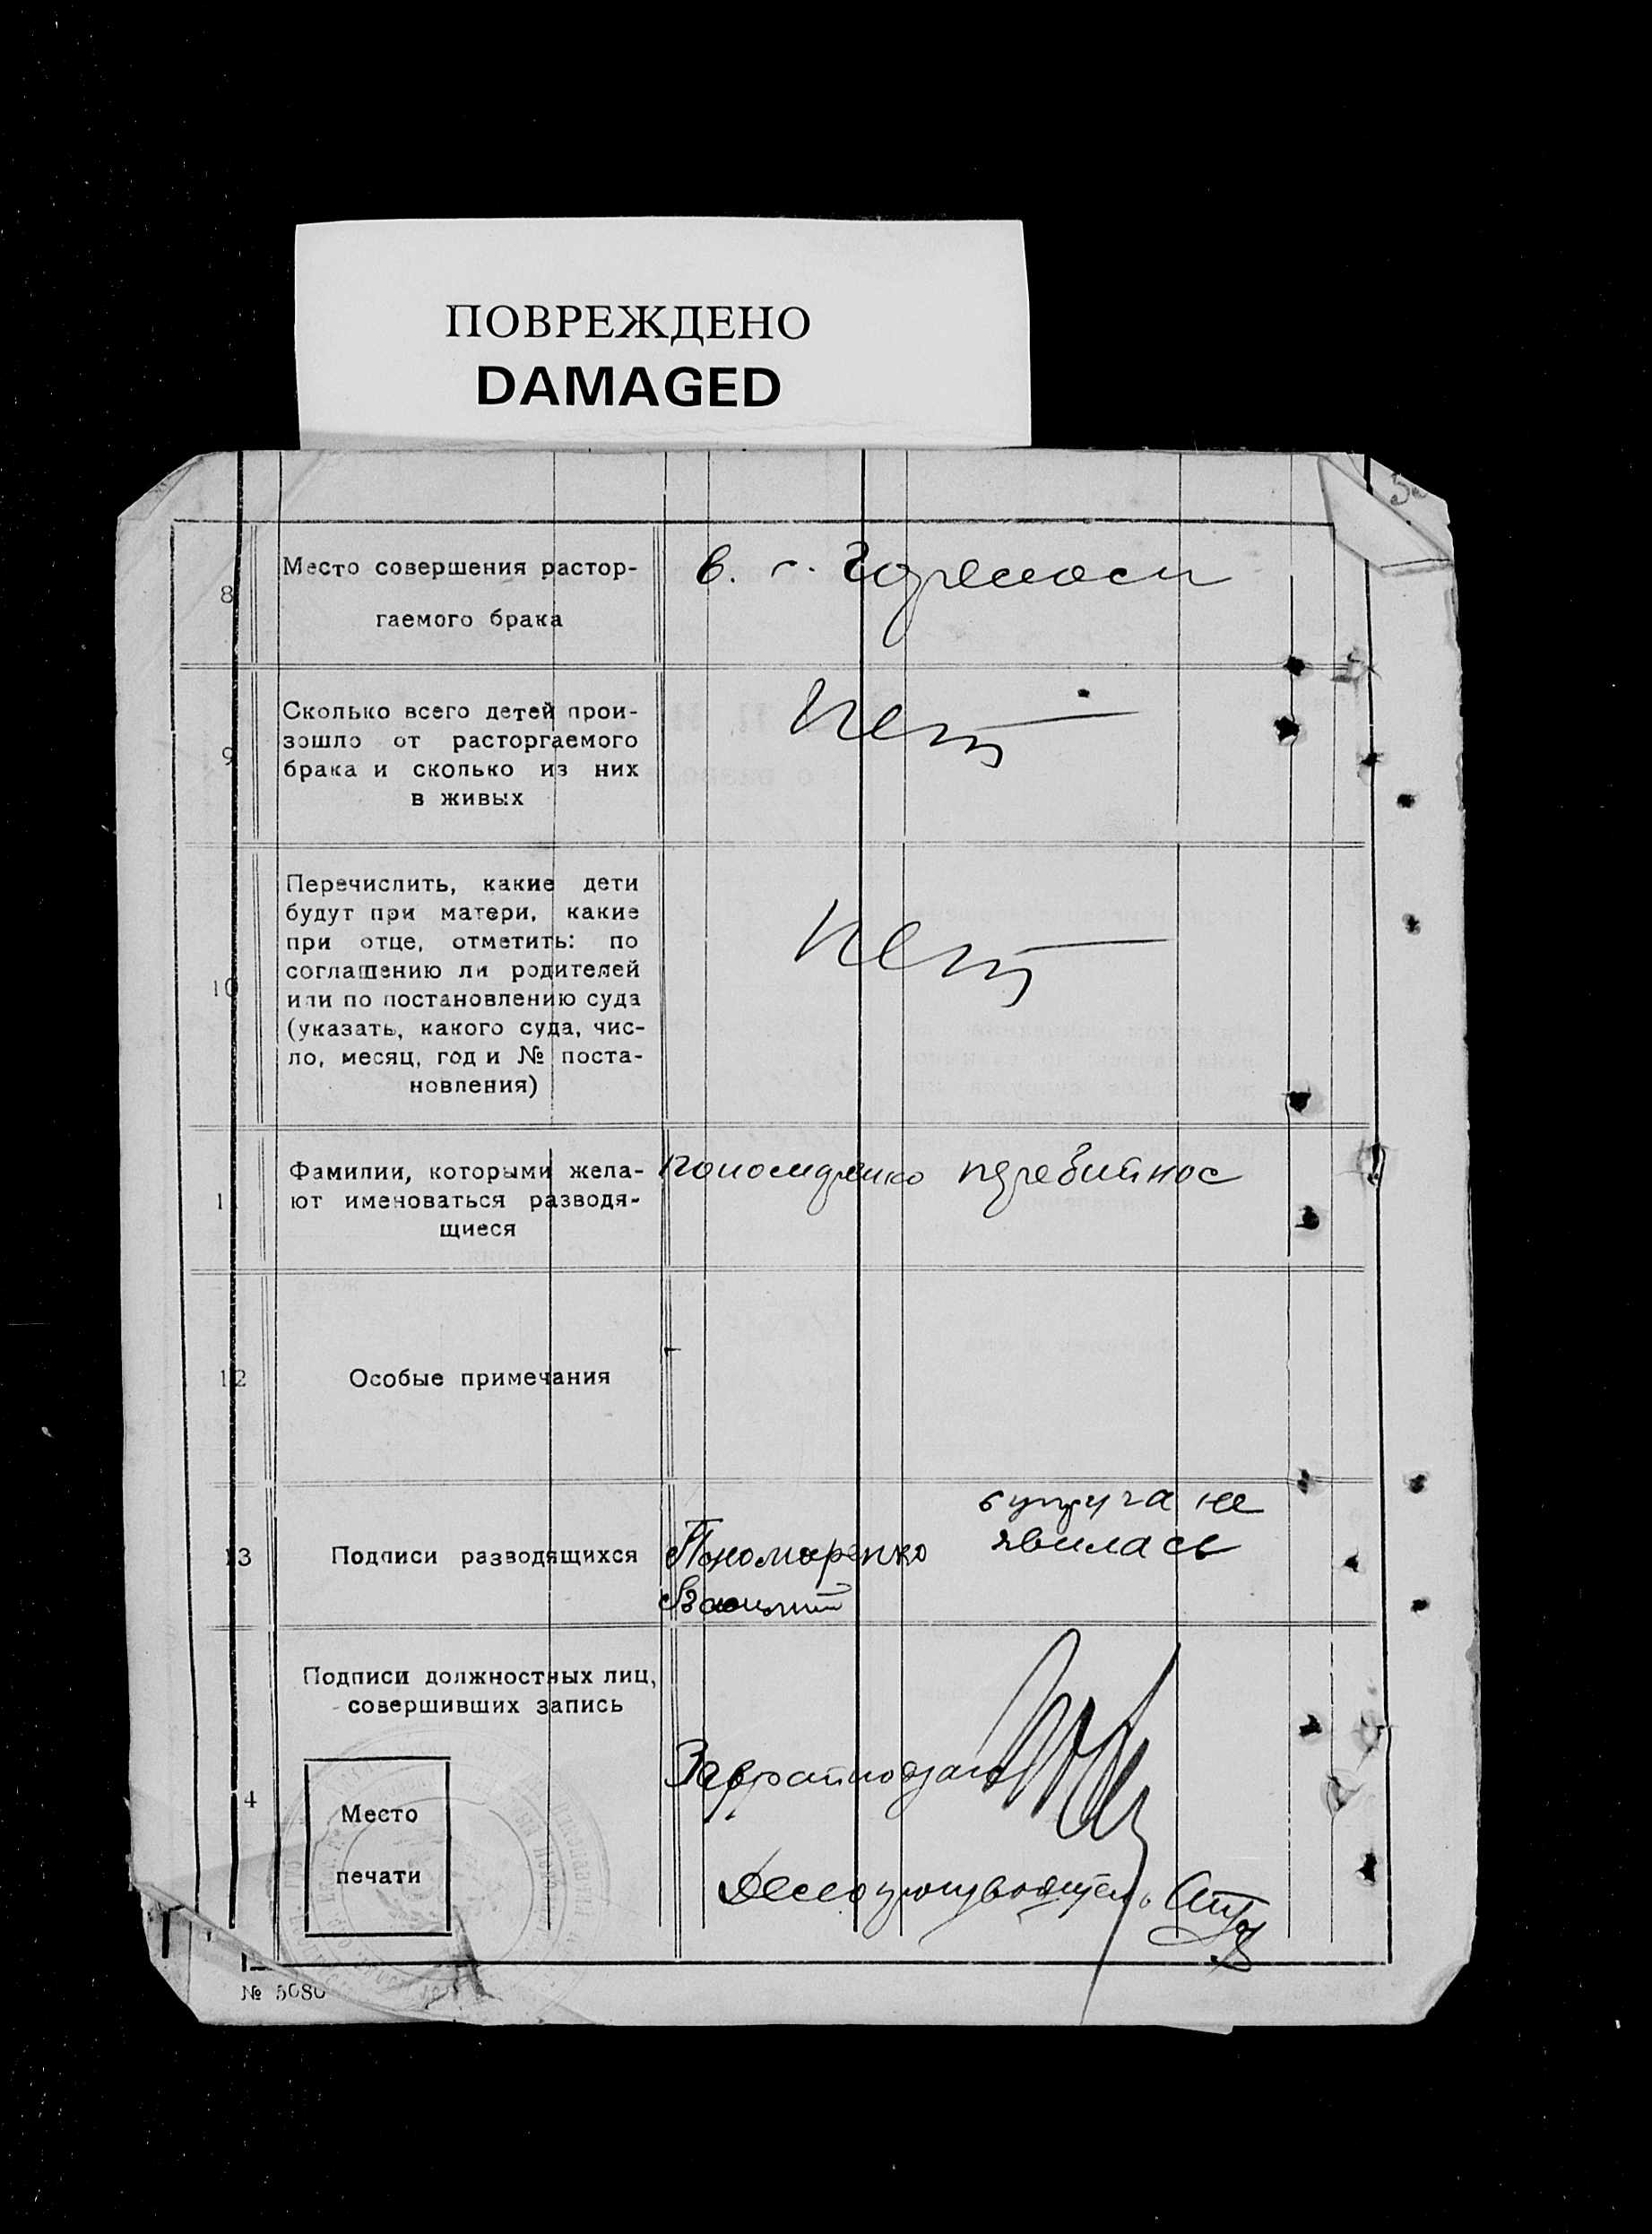 ПОВРЕЖДЕНО
DAMAGED
8 Место совершения растор-
гаемого брака
в. г.
9 Сколько всего детей прои-
зошло от расторгаемого
брака и сколько из них
в живых
Нет
10 Перечислить, какие дети
будут при матери, какие
при отце, отметить: по
соглашению ли родителей
или по постановлению суда
(указать, какого суда, чис-
ло, месяц, год и № поста-
новления)
Нет
Фамилии, которыми жела-
ют именоваться разводя-
щиеся
Пономаренко перебийнос
12 Особые примечания
13 Подписи разводящихся
Пономаренко
супруга не
явилась
Подписи должностных лиц,
совершивших запись
4
Место
печати
Делопроизводитель
№ 5080